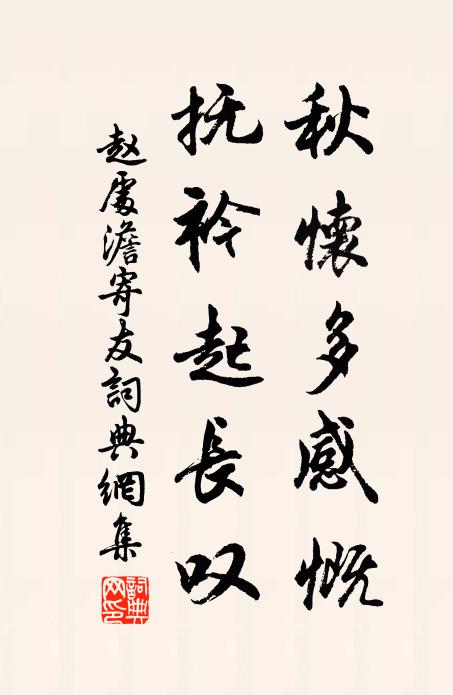 秋懷多感慨
抚衿起長叹
赵處澹寄友詞典網集
詞典網印